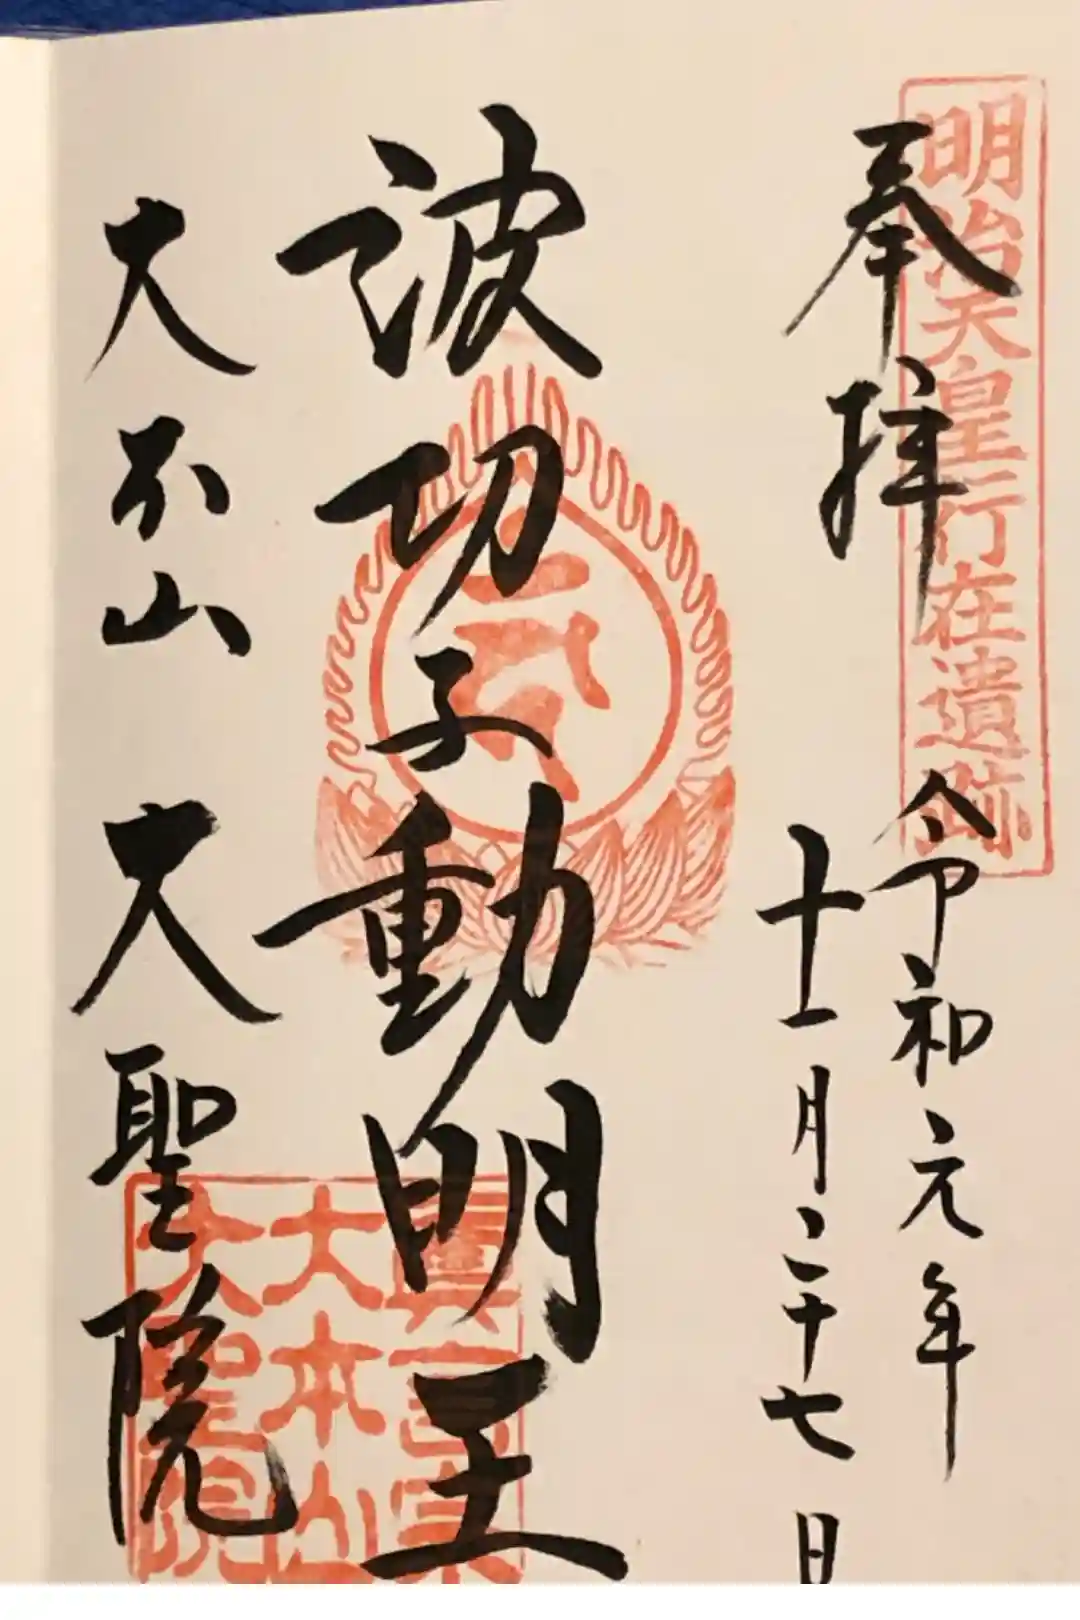 明治天皇行在遺跡
奉拝
令和元年
十一月二十七日
波切不動明王
大本山 大聖院
真言宗
大本山
大聖院